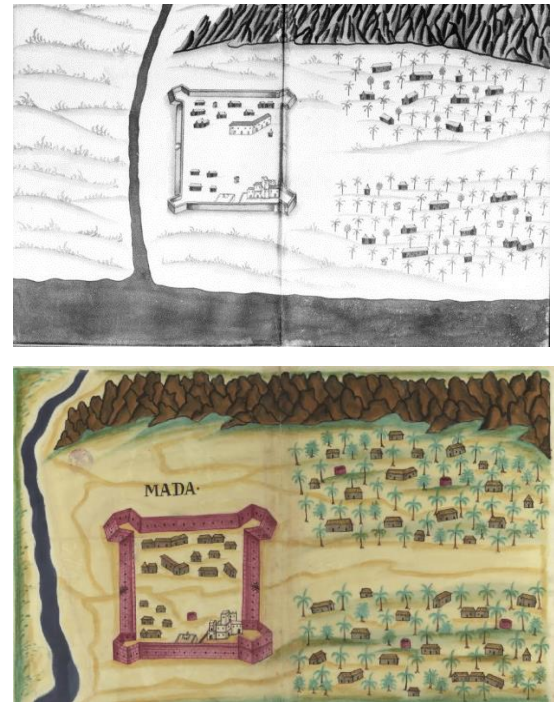 MADA·